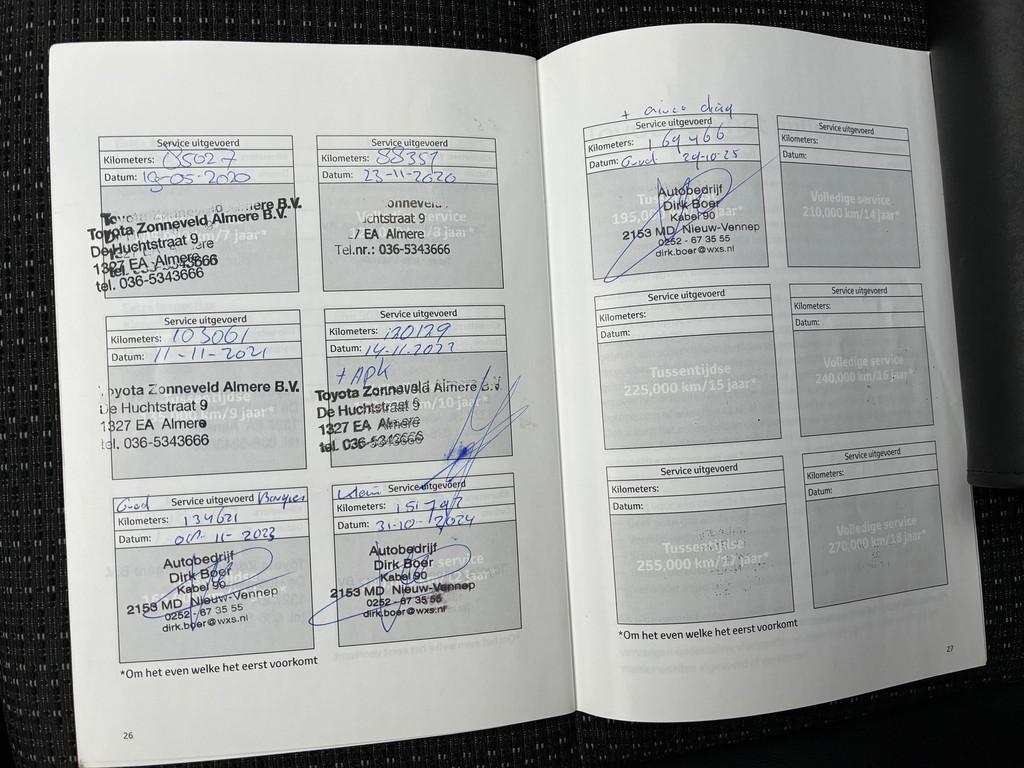 Service uitgevoerd
Kilometers: 85027
Datum: 19-05-2020
Toyota Zonneveld Almere B.V.
De Huchtstraat 9
1327 EA Almere
tel. 036-5343666
Service uitgevoerd
Kilometers: 88351
Datum: 23-11-2020
onneveld
uchtstraat 9
EA Almere
Tel.nr.: 036-5343666
Service uitgevoerd
Kilometers: 103061
Datum: 11-11-2021
oyota Zonneveld Almere B.V.
De Huchtstraat 9
1327 EA Almere
tel. 036-5343666
Service uitgevoerd
Kilometers: 120129
Datum: 14-11-2022
+ APK
Toyota Zonneveld Almere B.V.
De Huchtstraat 9
1327 EA Almere
tel. 036-5343666
Service uitgevoerd
Kilometers: 134621
Datum: 11-2023
Autobedrijf
Dirk Boer
Kabel 90
2153 MD Nieuw-Vennep
0252 - 67 35 55
dirk.boer@wxs.nl
Klein Service uitgevoerd
Kilometers:
Datum: 31-10-2024
Autobedrijf
Dirk Boer
Kabel 90
2153 MD Nieuw-Vennep
0252 - 67 35 55
dirk.boer@wxs.nl
*Om het even welke het eerst voorkomt
26
+ airco diag
Service uitgevoerd
Kilometers: 169466
Datum: Groot 29-10-25
Autobedrijf
Dirk Boer
Kabel 90
2153 MD Nieuw-Vennep
0252 - 67 35 55
dirk.boer@wxs.nl
Service uitgevoerd
Kilometers:
Datum:
Volledige service
210,000 km/14 jaar*
Service uitgevoerd
Kilometers:
Datum:
Tussentijdse
225,000 km/15 jaar*
Service uitgevoerd
Kilometers:
Datum:
Volledige service
240,000 km/16 jaar*
Service uitgevoerd
Kilometers:
Datum:
Tussentijdse
255,000 km/17 jaar*
Service uitgevoerd
Kilometers:
Datum:
Volledige service
270,000 km/18 jaar*
*Om het even welke het eerst voorkomt
27